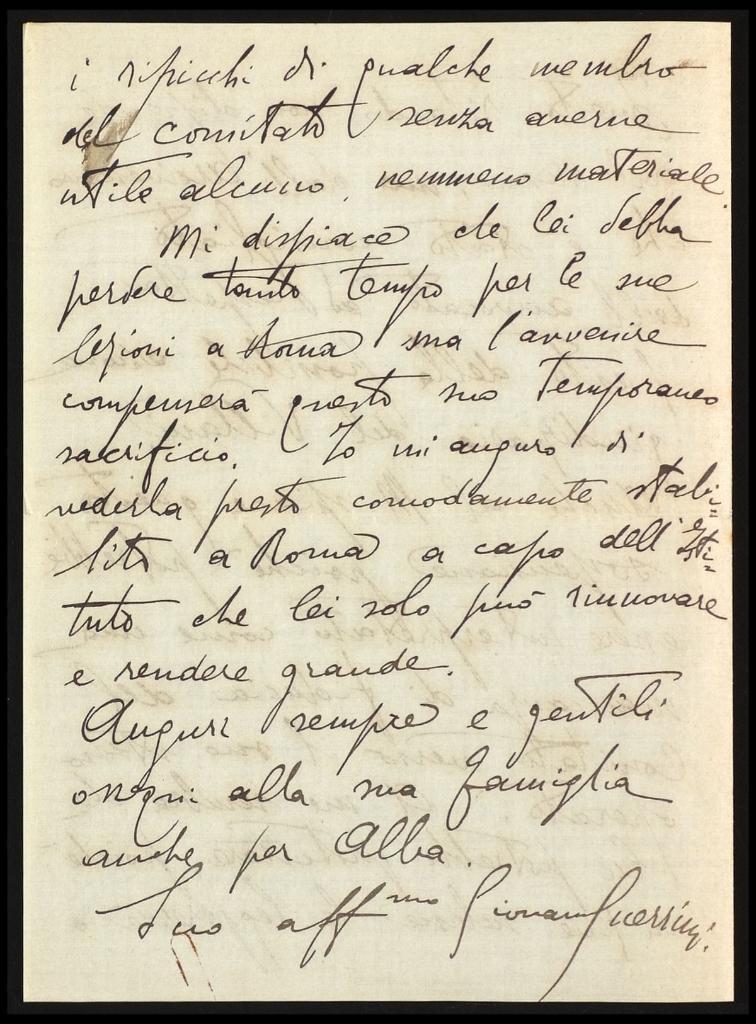 i ripicchi di qualche membro
del comitato senza averne
utile alcuno, nemmeno materiale.
Mi dispiace che lei debba
perdere tanto tempo per le sue
lezioni a Roma ma l'avvenire
compenserà questo suo temporaneo
sacrificio. Io mi auguro di
vederla presto comodamente stabi=
lito a Roma a capo dell'Isti=
tuto che lei solo può rinnovare
e rendere grande.
Auguri sempre e gentili
ossequi alla sua famiglia
anche per Alba.
Suo aff.mo Giovanni Guerrini.